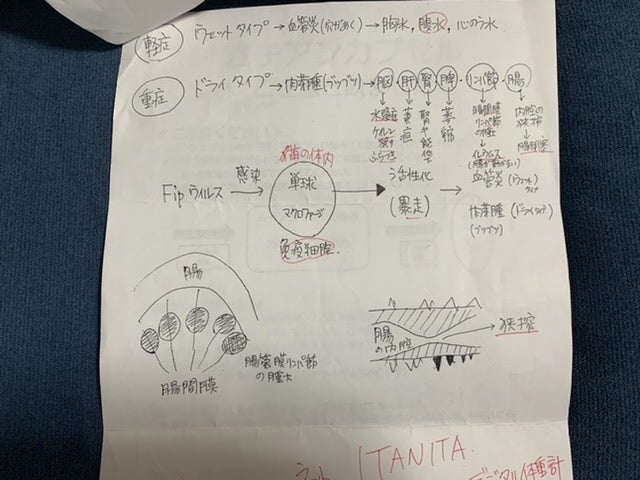 軽症 ウェットタイプ→血管炎(穴があく)→胸水,腹水,心のう水.
重症 ドライタイプ→肉芽腫(ブツブツ)→脳 肝 腎 脾 リンパ節 腸
水頭症
ふらつき
黄疸
萎縮
腸間膜
リンパ節
の腫大
イレウス
内腔の
狭搾
→腸閉塞
猫の体内
Fipウイルス 感染 単球 マクロファージ 活性化
(暴走)
血管炎(ウェットタイプ)
肉芽腫(ドライタイプ)
(ブツブツ)
免疫細胞.
腸
腸間膜
腸管膜リンパ節
の腫大
腸の内腔
狭搾
ネット
TANITA.
デジタル体重計